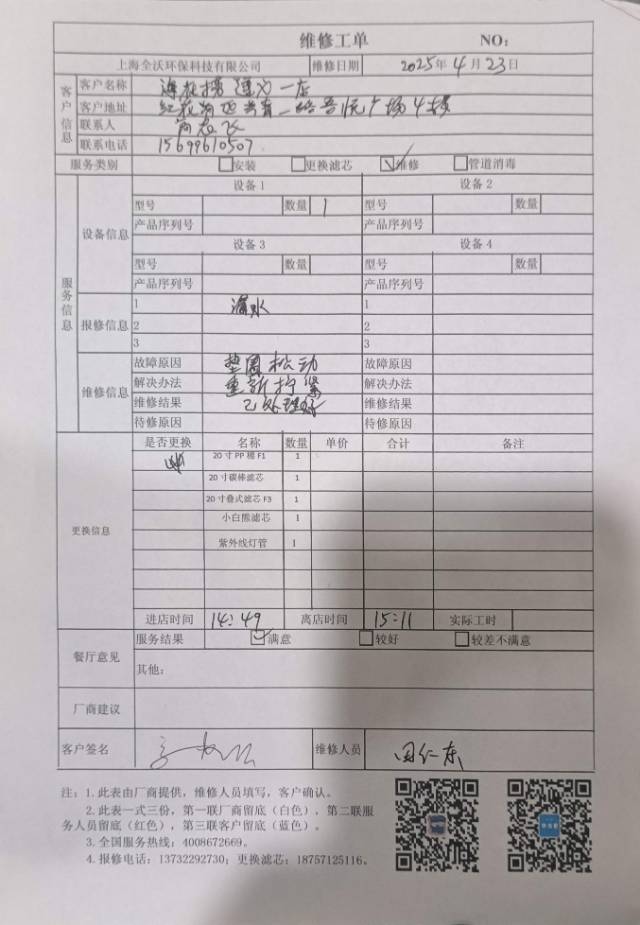 维修工单 NO:
上海全沃环保科技有限公司 维修日期 2025年4月23日
客户信息
客户名称 海底捞遵义一店
客户地址 红花岗区共青 路吾悦广场4楼
联系人
联系电话 15699610507
服务类别 安装 更换滤芯 维修 管道消毒
服务信息
设备信息
设备1 设备2
型号 数量 1 型号 数量
产品序列号 产品序列号
设备3 设备4
型号 数量 型号 数量
产品序列号 产品序列号
报修信息
1 漏水 1
2 2
3 3
维修信息
故障原因 垫圈松动 故障原因
解决办法 重新拧紧 解决办法
维修结果 已处理好 维修结果
待修原因 待修原因
更换信息
是否更换 名称 数量 单价 合计 备注
20寸PP棉F1 1
20寸碳棒滤芯 1
20寸叠式滤芯F3 1
小白熊滤芯 1
紫外线灯管 1
进店时间 14:49 离店时间 15:11 实际工时
餐厅意见
服务结果 满意 较好 较差不满意
其他:
厂商建议
客户签名 维修人员 田仁东
注:1.此表由厂商提供,维修人员填写,客户确认。
2.此表一式三份,第一联厂商留底(白色),第二联服
务人员留底(红色),第三联客户留底(蓝色)。
3.全国服务热线:4008672669。
4.报修电话:13732292730;更换滤芯:18757125116。